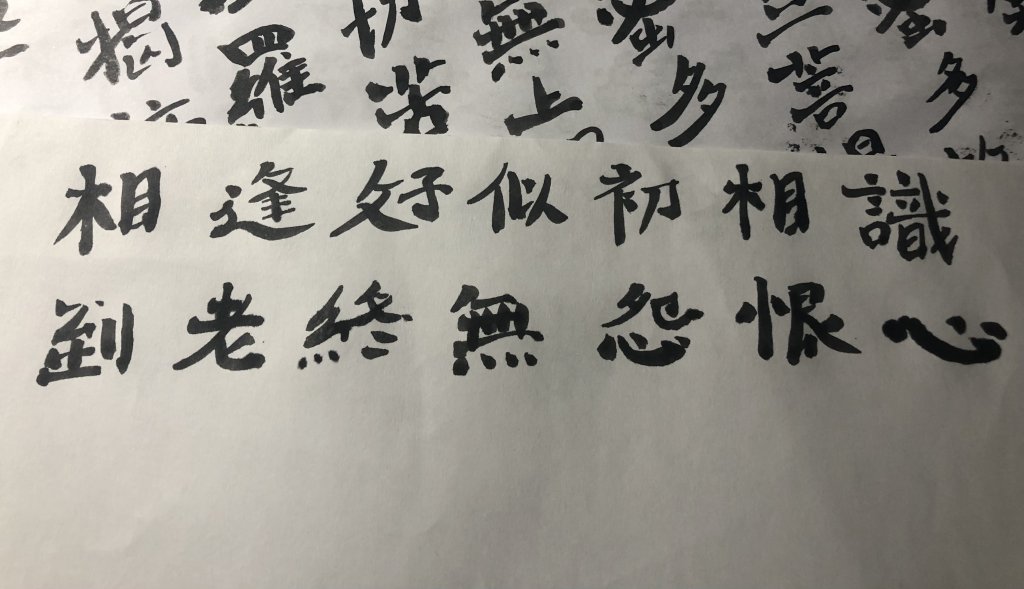 蜜多
三菩
蜜多
無上
切苦
羅
揭
相逢好似初相識
到老終無怨恨心